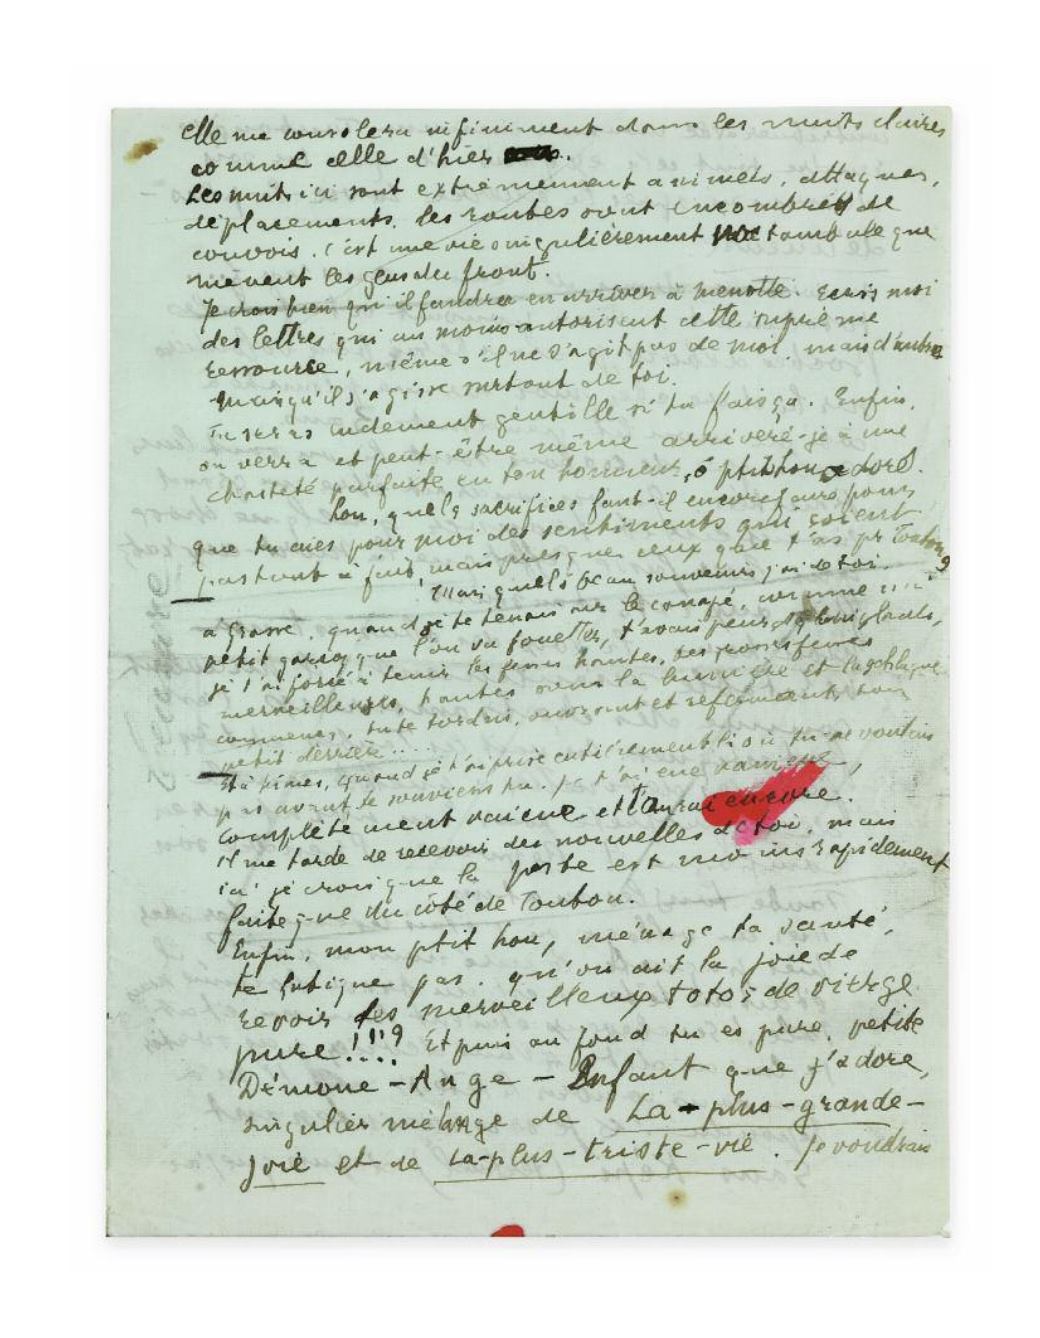 elle me consolera infiniment dans les nuits claires
comme celle d'hier
Les nuits ici sont extrêmement animées, attaques,
déplacements, les routes sont encombrées de
convois. C'est une vie singulièrement noctambule que
mènent les gens du front.
Je crois bien qu'il faudra en arriver à menotte. Ecris moi
des lettres qui au moins autorisent cette suprême
ressource, même s'il ne s'agit pas de moi, mais d'autres
mais qu'il s'agisse surtout de toi.
Tu seras rudement gentille si tu fais ça. Enfin,
on verra et peut-être même arriverè-je à une
chasteté parfaite en ton honneur, ô ptit hou adoré.
Lou, quels sacrifices faut-il encore faire pour
que tu aies pour moi des sentiments qui soient
pas tout à fait mais presque ceux que t'as pr Toutou
Mais quels beaux souvenirs j'ai de toi.
à Grasse, quand je te tenais sur le canapé, comme un
petit garçon que l'on va fouetter, t'avais peur
je t'ai forcé à tenir les jambes hautes, tes grosses fesses
merveilleuses, hautes sous la lumière et la schlague
commença, toute tordue, ouvrant et refermant ton
petit derrière ....
Et à Nîmes, quand je t'ai prise entièrement où tu ne voulais
pas avant, te souviens-tu. Je t'ai eue vaincue,
complètement vaincue et t'aurai encore.
Il me tarde de recevoir des nouvelles de toi, mais
ici je crois que la poste est moins rapidement
faite que du côté de Toutou.
Enfin, mon ptit hou, ménage ta santé,
te fatigue pas, qu'on ait la joie de
revoir tes merveilleux totos de vierge
pure!!!? Et puis au fond tu es pure, petite
Démone - Ange - Enfant que j'adore,
singulier mélange de La-plus-grande-
joie et de La-plus-triste-vie. Je voudrais